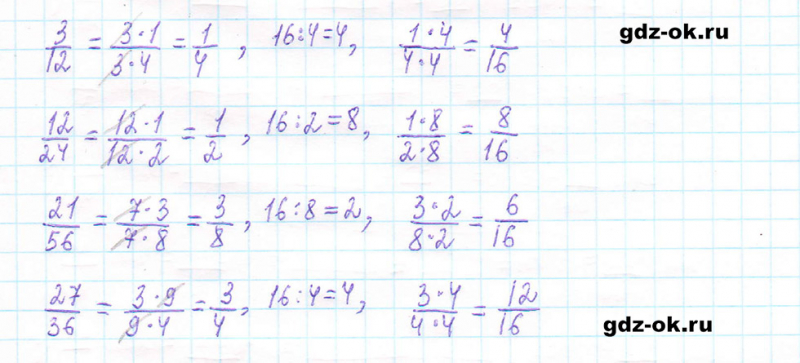 3/12 = 3·1/3·4 = 1/4 , 16:4=4, 1·4/4·4 = 4/16 gdz-ok.ru
12/24 = 12·1/12·2 = 1/2 , 16:2=8, 1·8/2·8 = 8/16
21/56 = 7·3/7·8 = 3/8 , 16:8=2, 3·2/8·2 = 6/16
27/36 = 3·9/9·4 = 3/4 , 16:4=4, 3·4/4·4 = 12/16
gdz-ok.ru